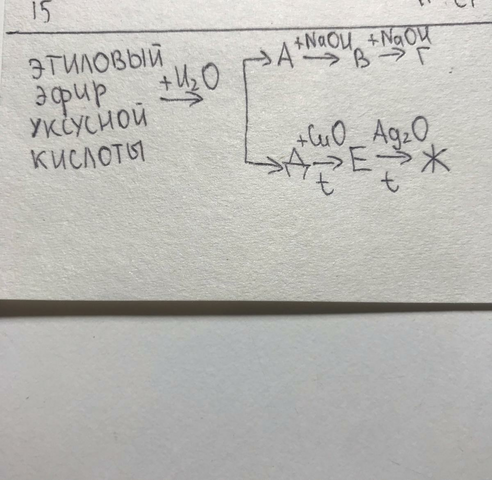 15
ЭТИЛОВЫЙ
ЭФИР
УКСУСНОЙ
КИСЛОТЫ
+H₂O →
→ A +NaOH → B +NaOH → Г
→ Д +CuO → t E Ag₂O → t Ж